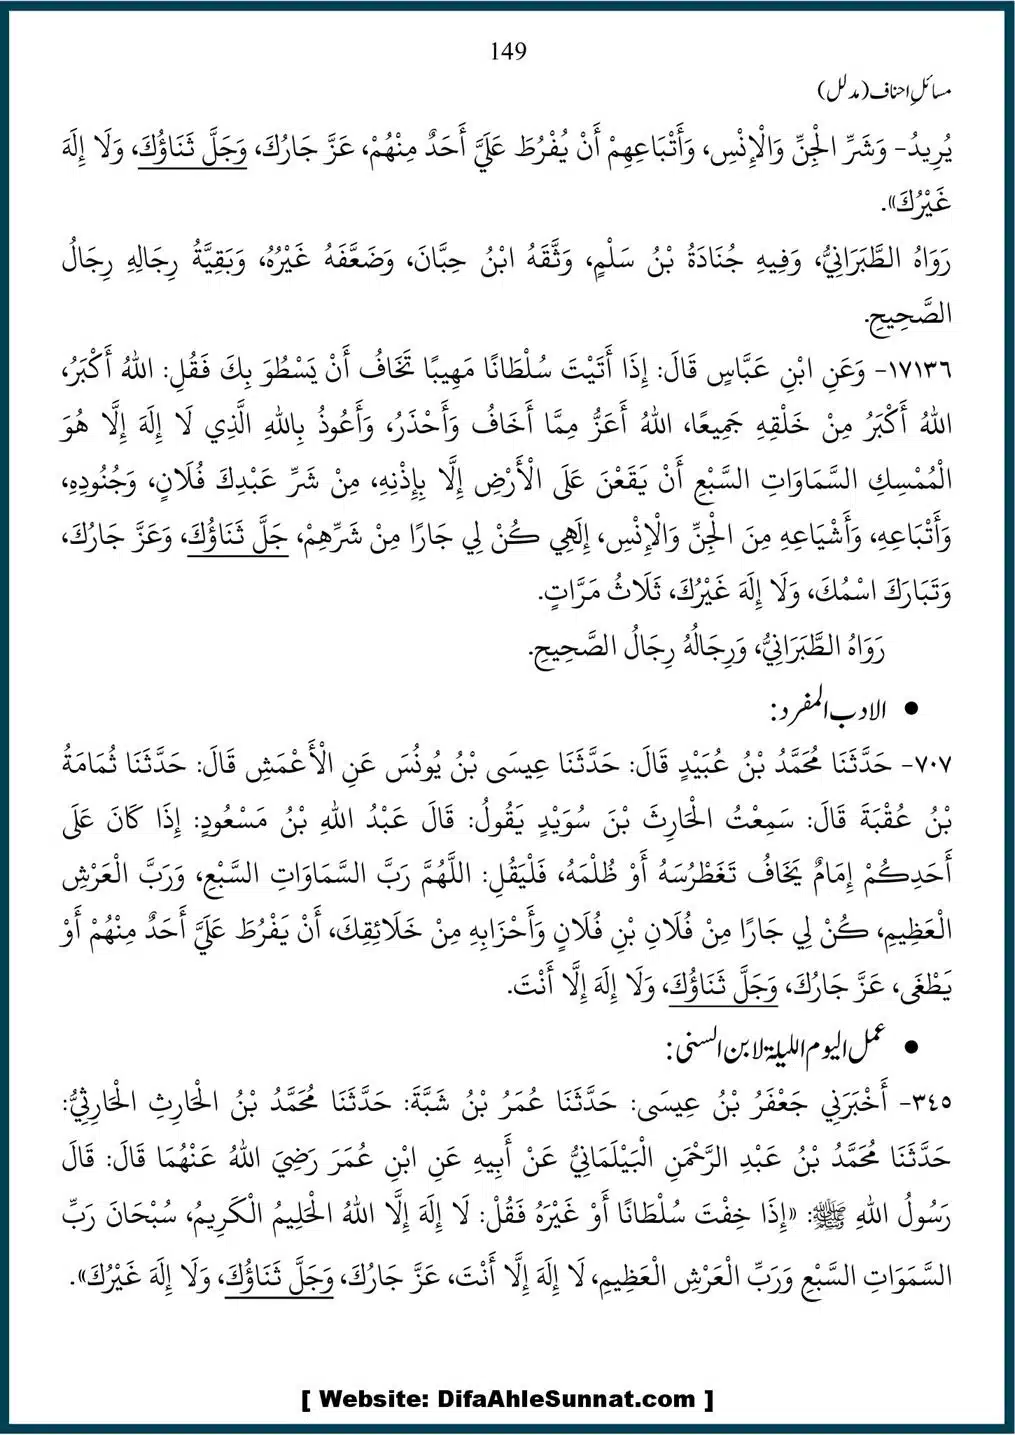 149
مسائلِ احناف (مدلل)
يُرِيدُ- وَشَرِّ الْجِنِّ وَالْإِنْسِ، وَأَتْبَاعِهِمْ أَنْ يُفْرُطَ عَلَيَّ أَحَدٌ مِنْهُمْ، عَزَّ جَارُكَ، وَجَلَّ ثَنَاؤُكَ، وَلَا إِلَهَ
غَيْرُكَ».
رَوَاهُ الطَّبَرَانِيُّ، وَفِيهِ جُنَادَةُ بْنُ سَلْمٍ، وَثَّقَهُ ابْنُ حِبَّانَ، وَضَعَّفَهُ غَيْرُهُ، وَبَقِيَّةُ رِجَالِهِ رِجَالُ
الصَّحِيحِ.
١٧١٣٦- وَعَنِ ابْنِ عَبَّاسٍ قَالَ: إِذَا أَتَيْتَ سُلْطَانًا مَهِيبًا تَخَافُ أَنْ يَسْطُوَ بِكَ فَقُلِ: اللهُ أَكْبَرُ،
اللهُ أَكْبَرُ مِنْ خَلْقِهِ جَمِيعًا، اللهُ أَعَزُّ مِمَّا أَخَافُ وَأَحْذَرُ، وَأَعُوذُ بِاللهِ الَّذِي لَا إِلَهَ إِلَّا هُوَ
الْمُمْسِكِ السَّمَاوَاتِ السَّبْعِ أَنْ يَقَعْنَ عَلَى الْأَرْضِ إِلَّا بِإِذْنِهِ، مِنْ شَرِّ عَبْدِكَ فُلَانٍ، وَجُنُودِهِ،
وَأَتْبَاعِهِ، وَأَشْيَاعِهِ مِنَ الْجِنِّ وَالْإِنْسِ، إِلَهِي كُنْ لِي جَارًا مِنْ شَرِّهِمْ، جَلَّ ثَنَاؤُكَ، وَعَزَّ جَارُكَ،
وَتَبَارَكَ اسْمُكَ، وَلَا إِلَهَ غَيْرُكَ، ثَلَاثُ مَرَّاتٍ.
رَوَاهُ الطَّبَرَانِيُّ، وَرِجَالُهُ رِجَالُ الصَّحِيحِ.
● الادب المفرد:
٧٠٧- حَدَّثَنَا مُحَمَّدُ بْنُ عُبَيْدٍ قَالَ: حَدَّثَنَا عِيسَى بْنُ يُونُسَ عَنِ الْأَعْمَشِ قَالَ: حَدَّثَنَا ثُمَامَةُ
بْنُ عُقْبَةَ قَالَ: سَمِعْتُ الْحَارِثَ بْنَ سُوَيْدٍ يَقُولُ: قَالَ عَبْدُ اللهِ بْنُ مَسْعُودٍ: إِذَا كَانَ عَلَى
أَحَدِكُمْ إِمَامٌ يَخَافُ تَغَطْرُسَهُ أَوْ ظُلْمَهُ، فَلْيَقُلِ: اللَّهُمَّ رَبَّ السَّمَاوَاتِ السَّبْعِ، وَرَبَّ الْعَرْشِ
الْعَظِيمِ، كُنْ لِي جَارًا مِنْ فُلَانِ بْنِ فُلَانٍ وَأَحْزَابِهِ مِنْ خَلَائِقِكَ، أَنْ يَفْرُطَ عَلَيَّ أَحَدٌ مِنْهُمْ أَوْ
يَطْغَى، عَزَّ جَارُكَ، وَجَلَّ ثَنَاؤُكَ، وَلَا إِلَهَ إِلَّا أَنْتَ.
● عمل الیوم اللیلۃ لابن السنی:
٣٤٥- أَخْبَرَنِي جَعْفَرُ بْنُ عِيسَى: حَدَّثَنَا عُمَرُ بْنُ شَبَّةَ: حَدَّثَنَا مُحَمَّدُ بْنُ الْحَارِثِ الْحَارِثِيُّ:
حَدَّثَنَا مُحَمَّدُ بْنُ عَبْدِ الرَّحْمَنِ الْبَيْلَمَانِيُّ عَنْ أَبِيهِ عَنِ ابْنِ عُمَرَ رَضِيَ اللهُ عَنْهُمَا قَالَ: قَالَ
رَسُولُ اللهِ ﷺ: «إِذَا خِفْتَ سُلْطَانًا أَوْ غَيْرَهُ فَقُلْ: لَا إِلَهَ إِلَّا اللهُ الْحَلِيمُ الْكَرِيمُ، سُبْحَانَ رَبِّ
السَّمَوَاتِ السَّبْعِ وَرَبِّ الْعَرْشِ الْعَظِيمِ، لَا إِلَهَ إِلَّا أَنْتَ، عَزَّ جَارُكَ، وَجَلَّ ثَنَاؤُكَ، وَلَا إِلَهَ غَيْرُكَ».
[ Website: DifaAhleSunnat.com ]